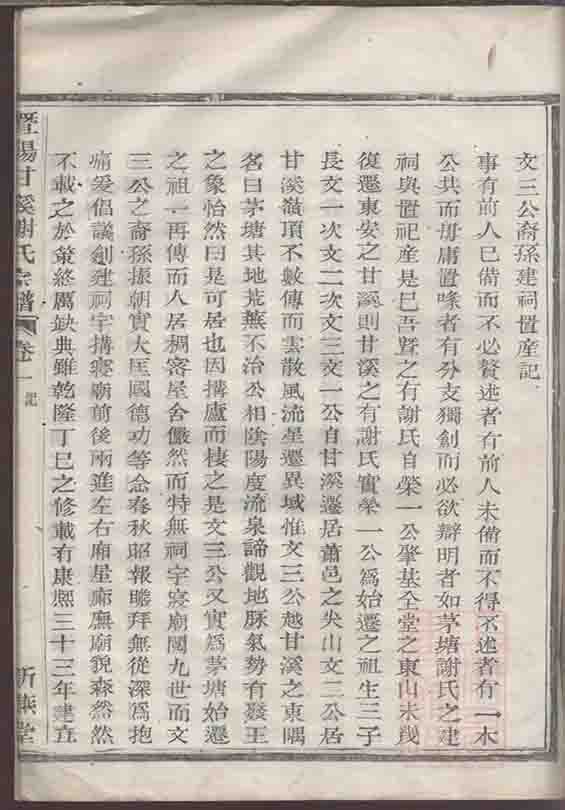 文三公裔孫建祠置產記
事有前人已備而不必贅述者有前人未備而不得不述者有一木
公共而毋庸置喙者有分支獨創而必欲辯明者如茅塘謝氏之建
祠與置祀産是已吾暨之有謝氏自榮一公肇基全堂之東山未幾
復遷東安之甘溪則甘溪之有謝氏實榮一公爲始遷之祖生三子
長文一次文二次文三文一公自甘溪遷居蕭邑之尖山文二公居
甘溪嶺頂不數傳而雲散風流星遷異域惟文三公越甘溪之東隅
名曰茅塘其地荒蕪不治公相陰陽度流泉諦觀地脉氣勢有發王
之象怡然曰是可居也因搆廬而棲之是文三公又實爲茅塘始遷
之祖一再傳而人居稠密屋舍儼然而特無祠宇寢廟閲九世而文
三公之裔孫振朝實大匡國德功等念春秋昭報瞻拜無從深爲抱
痛爰倡議創建祠宇搆寢廟前後兩進左右廂星廊廡廟貌森然然
不載之於策終厲缺典雖乾隆丁巳之修載有康熙三十三年建立
暨陽甘溪謝氏宗譜 卷一 記